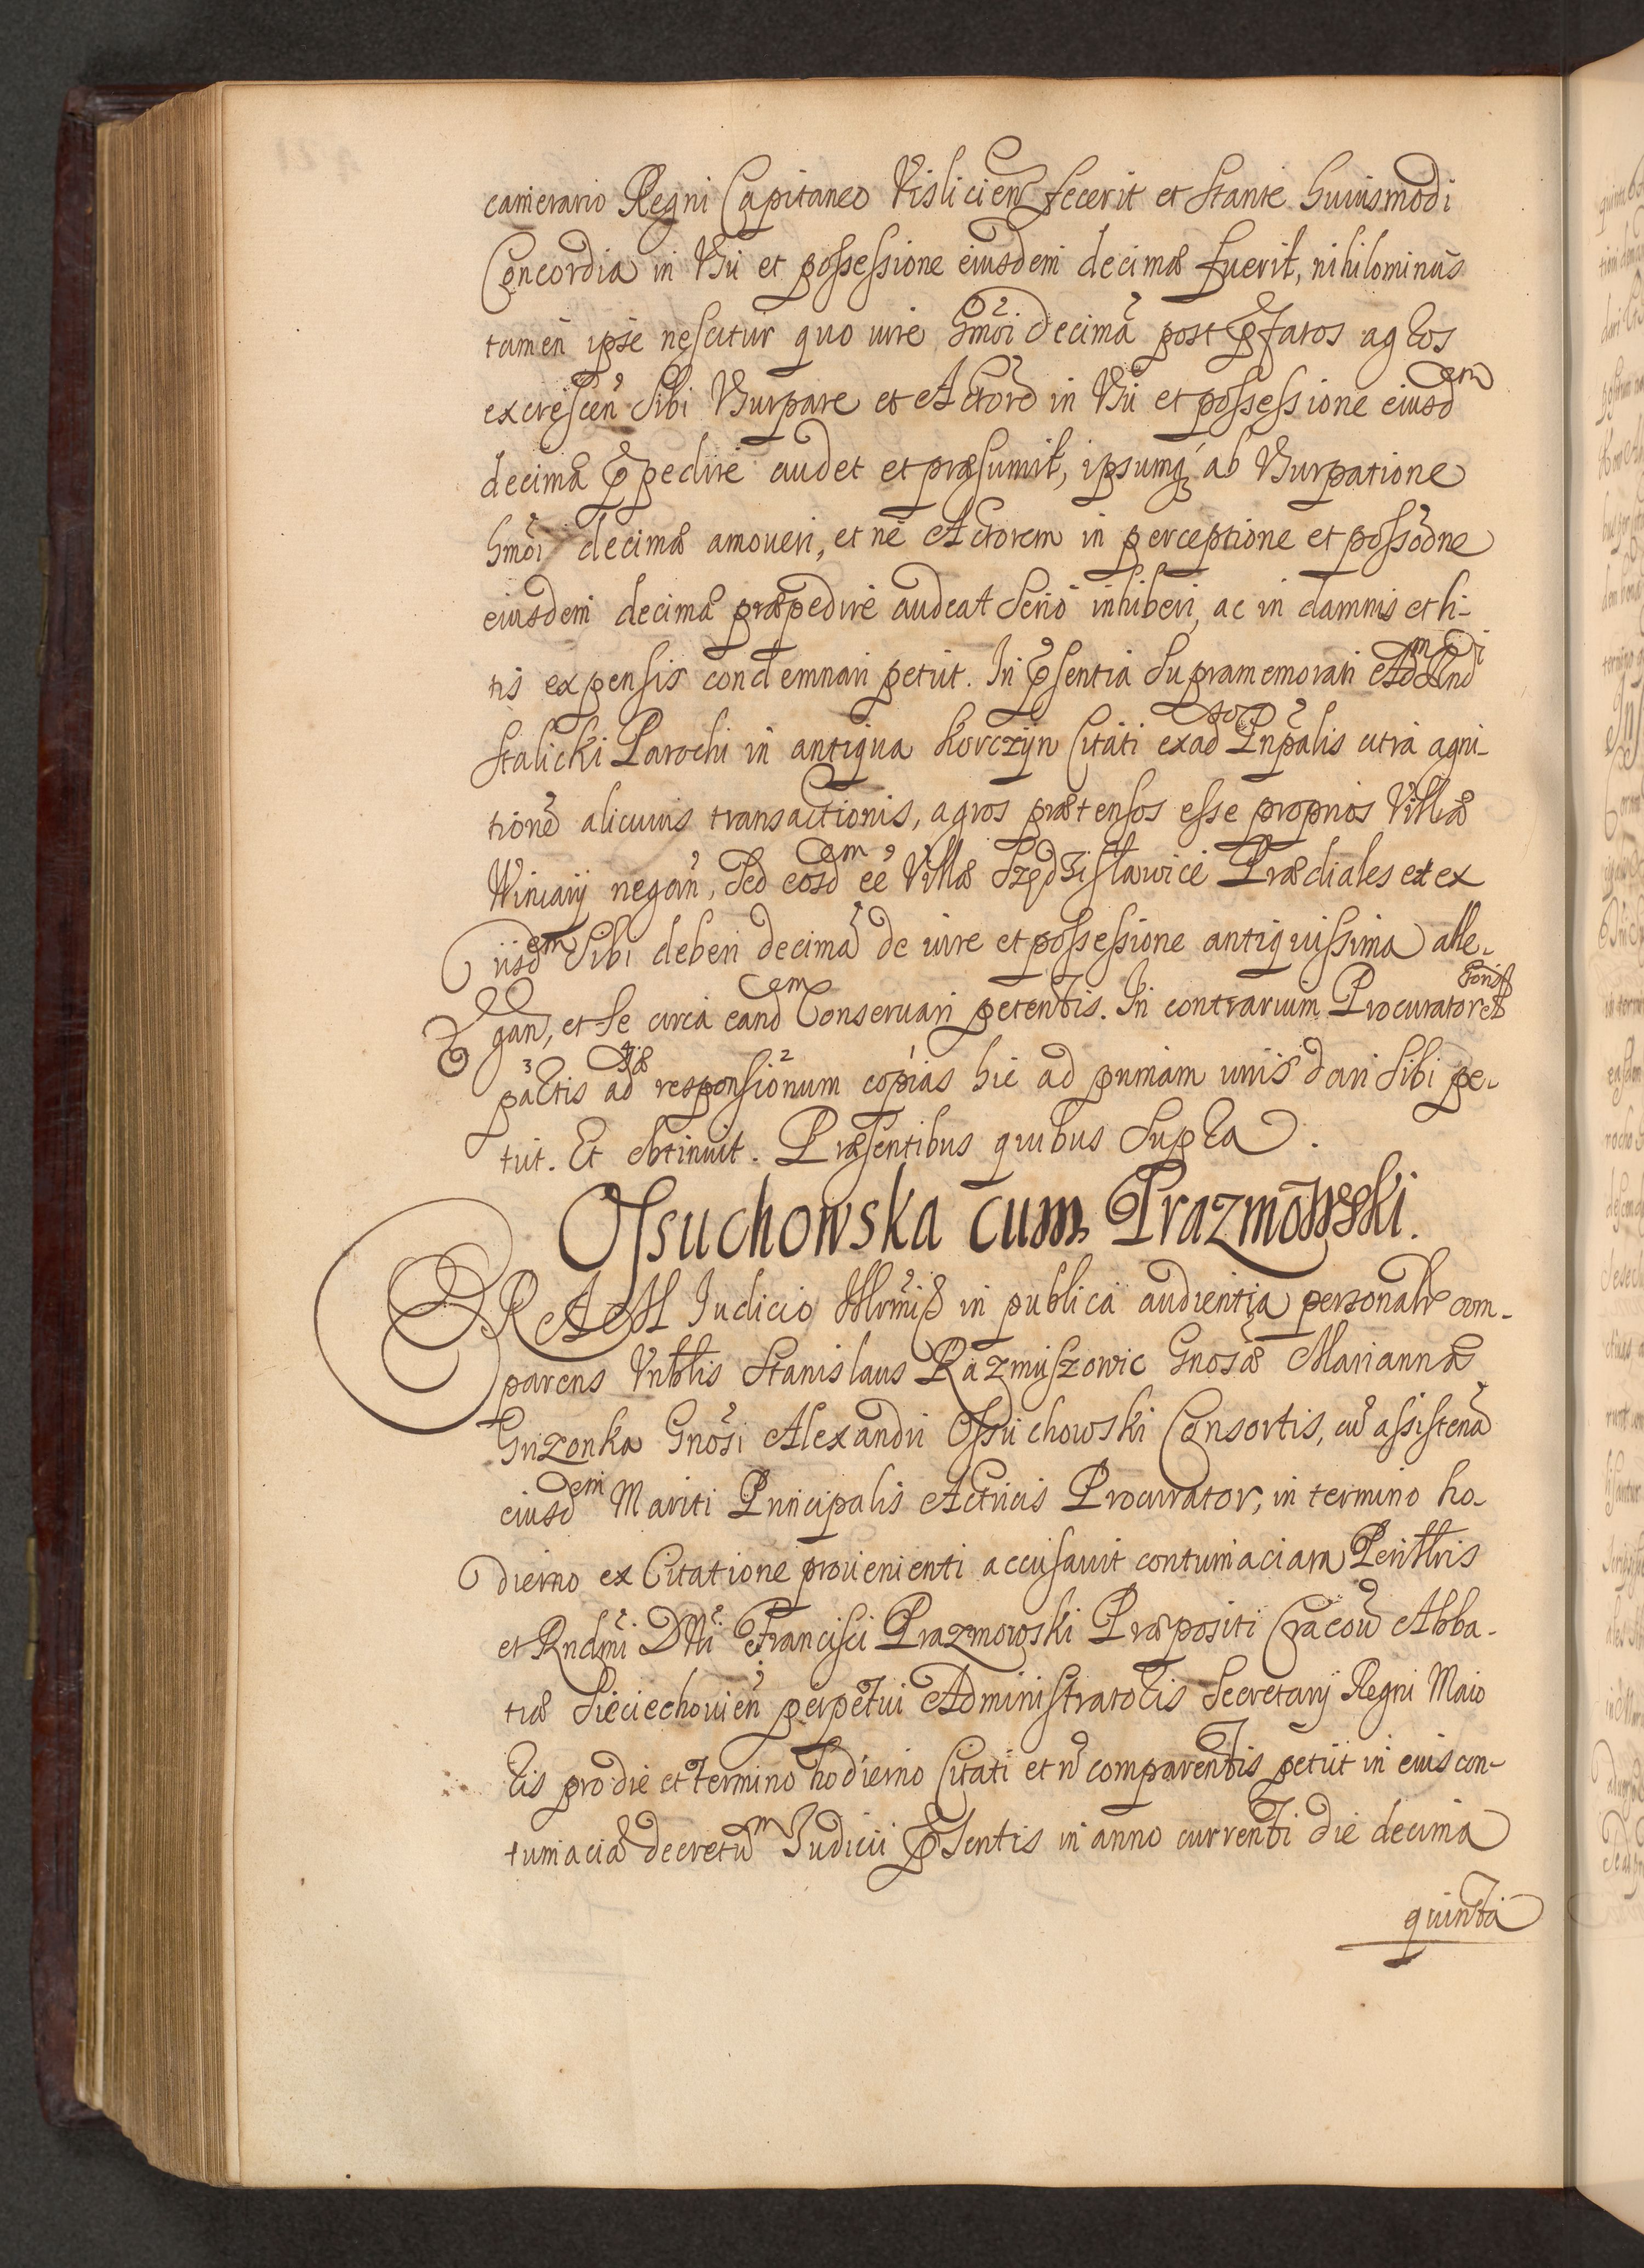 camerario Regni Capitaneo Vislicień fecerit et stante huiusmodi
Concordia in Vsu et possessione eiusdem decimæ fuerit, nihilominus
tamen ipse nescitur quo iure hmõi decimã post p̃fatos agros
excrescen̄ sibi Vsurpare et Actorē in Vsu et possessione eiusdem
decimæ p̃pedire audet et præsumit, ipsumq; ab Vsurpatione
hmõi decimæ amoueri, et ne Actorem in perceptione et possõdne
eiusdem decimæ præpedire audeat serio inhiberi, ac in damnis et li-
tis expensis condemnari petiit. In p̃sentia supramemorati Adm Rndi
Stalicki Parochi in antiqua Korczyn Citati ex ad Pñpalis citra agni-
tionē alicuius transactionis, agros prætensos esse proprios Villæ
Winiary negan̄, Sed eosdem eē Villæ Szędzisławice Prædiales et ex
iisdem sibi deberi decimã de iure et possessione antiquissima alle-
gan̄, et se circa eandem Conseruari petentis. In contrarium Procurator
pactis ad responsionum copias hic ad primam iuris dari sibi pe-
tiit. Et obtinuit. Præsentibus quibus Supra.
Ossuchowska cum Prazmowski.
CRAM Iudicio Nr̃mis in publica audientia personalr̄ com-
parens Vnblis Stanislaus Razmuszowic Gnosæ Mariannæ
Grizonka Gnosi Alexandri Ossuchowski Consortis, cū assistena
eiusdem Mariti Principalis Actricis Procurator, in termino ho-
dierno ex Citatione prouenienti accusauit contumaciam Perillris
et Rndmi Dñi Francisci Prazmowski Præpositi Cracow̄ Abba-
tiæ Sieciechouien̄ perpetui Administratoris Secretarij Regni Maio
ris pro die et termino hodierno Citati et nō comparentis petiit in eius con-
tumaciã decretum Iudicii p̃sentis in anno currenti die decima
quinta